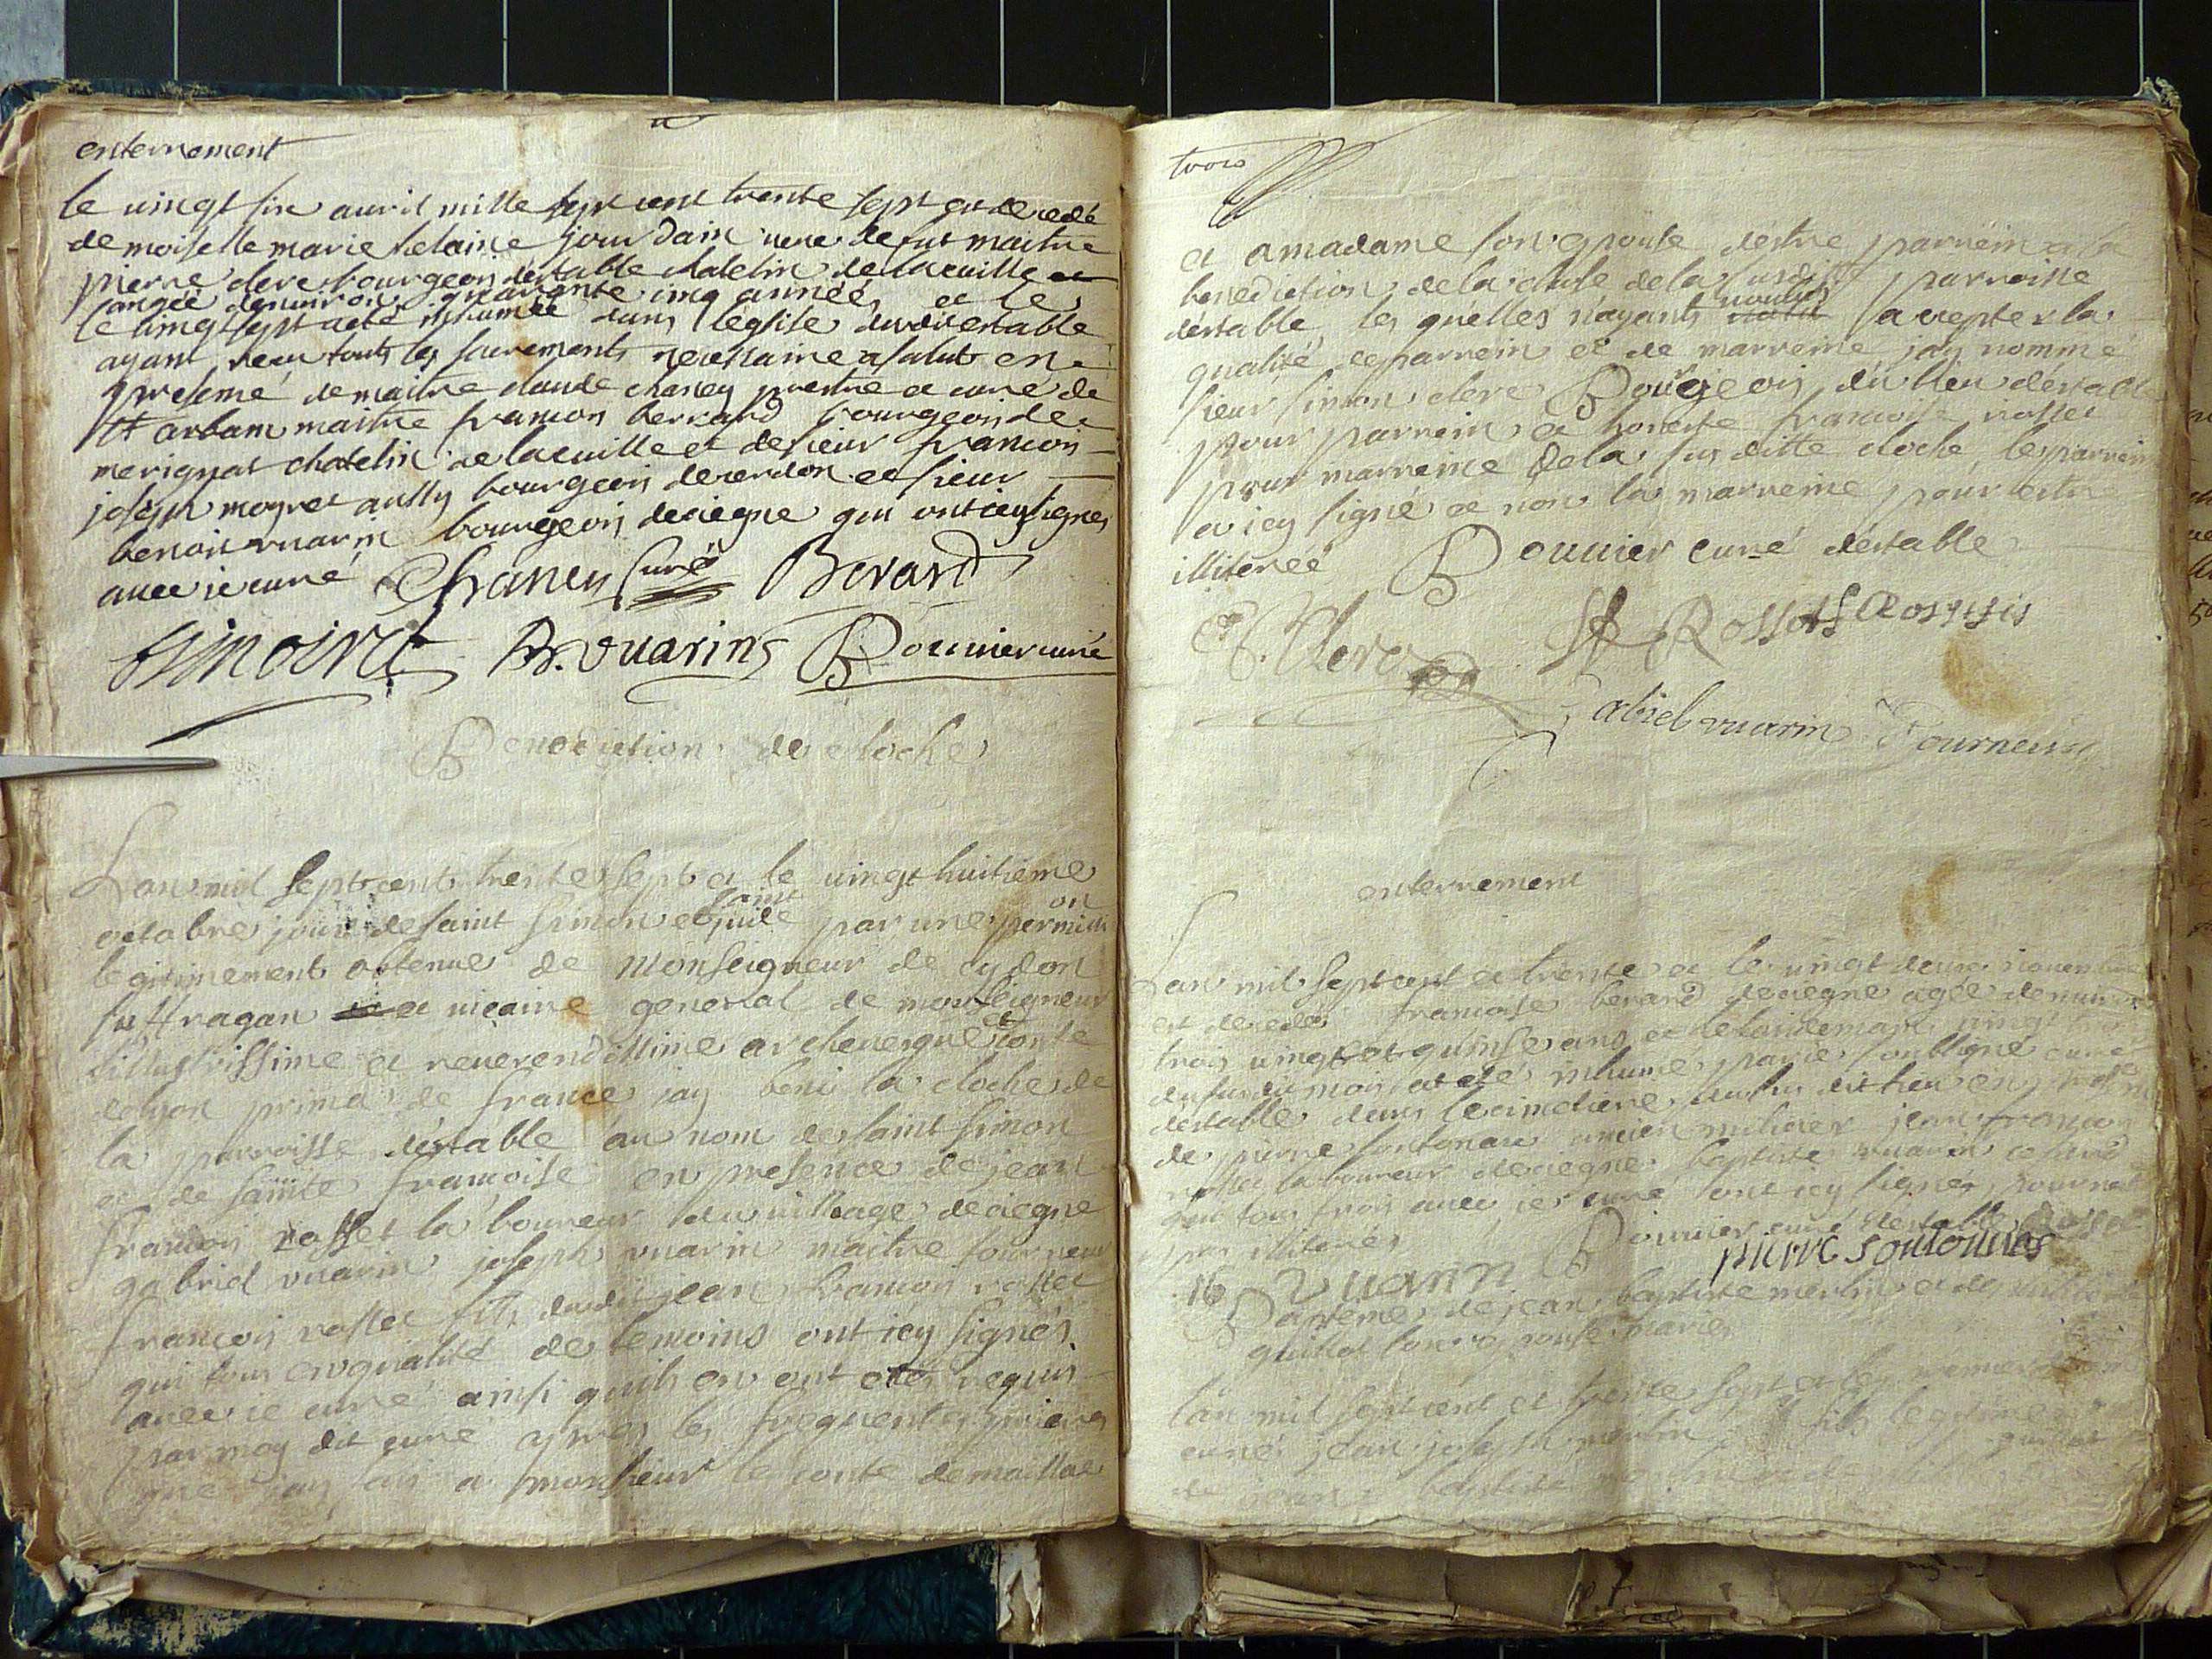 enterrement
le vingt six avril mille sept cent trente sept est decedé
demoiselle marie helaine jourdain veuve de fut maitre
pierre clerc bourgeois détable chatelin de lacueille et
aagée denviron quarante cinq années et le
le vingt sept a eté inhumée dans leglise duditestable
ayant recu touts les sacrements necessaire a salut en
presence de maitre claude chaney prestre et curé de
st arbam maitre francois berrard bourgeois de
merignat chatelin de lacuille et desieur francois
joseph moyret aussy bourgeois de cerdon et sieur
benoit vuarin bourgeois deciegne qui ont icy signes
avec ie curé Chaney Curé Berard
B. vuarins Bouuier curé
Benediction de cloches
Lan mil sept cent trente sept et le vingt huitieme
octobre jour de saint simon et saint jude par une permission
legitimement obtenue de monseigneur de cydon
suffragan et vicaire general de monseigneur
lillustrissime et reverendissime archeveque conte
delyon primat de france jay beni la cloche de
la parroisse déstable au nom de saint simon
et de sainte francoise en presence de jean
francois rosset laboureur du village deciegne
gabriel vuarin joseph vuarin maitre tourneur
francois rosset fils dudit jean francois rosset
qui tous en qualité de temoins ont icy signés
avec ie curé ainsi quils en ont etés requis
par moy dit curé apres les frequentes prieres
que jay fais a monsieur le conte demaillac
trois
et a madame son epouse destre parrein a la
benediction de la cloche de la susditte parroisse
déstable les quelles nayants voulus accepter la
qualité de parrein et de marreine jay nommé
sieur simon clerc Bourjeois du lieu déstable
pour parrein et honeste francoise rosset
pour marreine de la susditte cloche le parrein
a icy signé et non la marreine pour estre
illiterée Bouuier curé déstable
S. Clerc J f Rosset f Rosset fils
gabriel vuarin Tourneur
enterrement
Lan mil sept cent et trente et le vingt deux novembre
est decedée francoise berard deciegne agée denviron
trois vingt et quinse ans et le landemain vingt trois
du susdit mois at eté inhumé par ie soubsigné curé
déstable dans le cimetiere du susdit lieu en presence
de pierre soutonax ancien milicier jean francois
rosset laboureur deciegne baptiste vuarin
qui tous trois avec ie curé ont icy signés
illiterés Bouuier curé déstable
pierre soutonnas
16 vuarin
Bapteme de jean baptiste merlin et de
guillot son epouse mariés
lan mil sept cent et trente sept et le premier
jean joseph merlin fils legitime
de jean baptiste